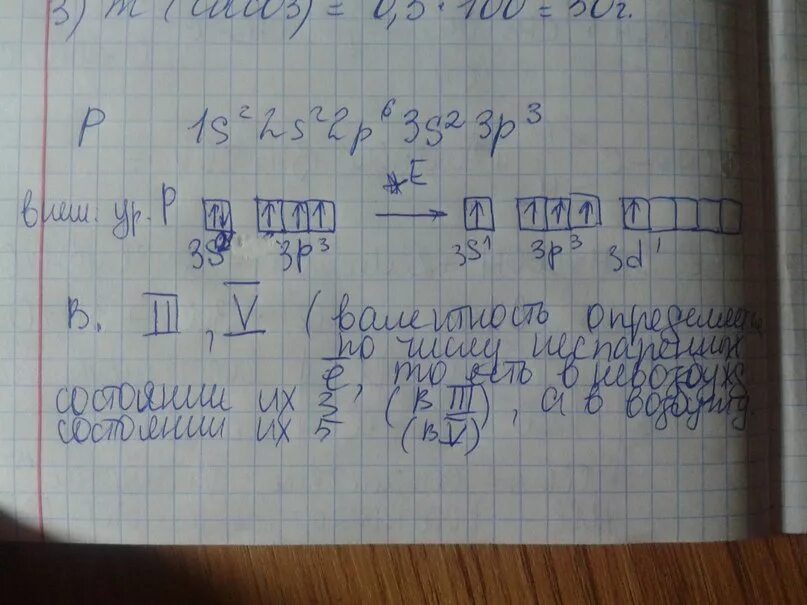 3) m (CaCO3) = 0,5 · 100 = 50г.
P 1s² 2s² 2p⁶ 3s² 3p³
E
внеш. ур. P
3s² 3p³ 3s¹ 3p³ 3d¹
В. III, V (валентность определяет
по числу неспаренных
ē, то есть в невозбужд
состоянии их 3 (В III), а в возбужд.
состоянии их 5 (В V)